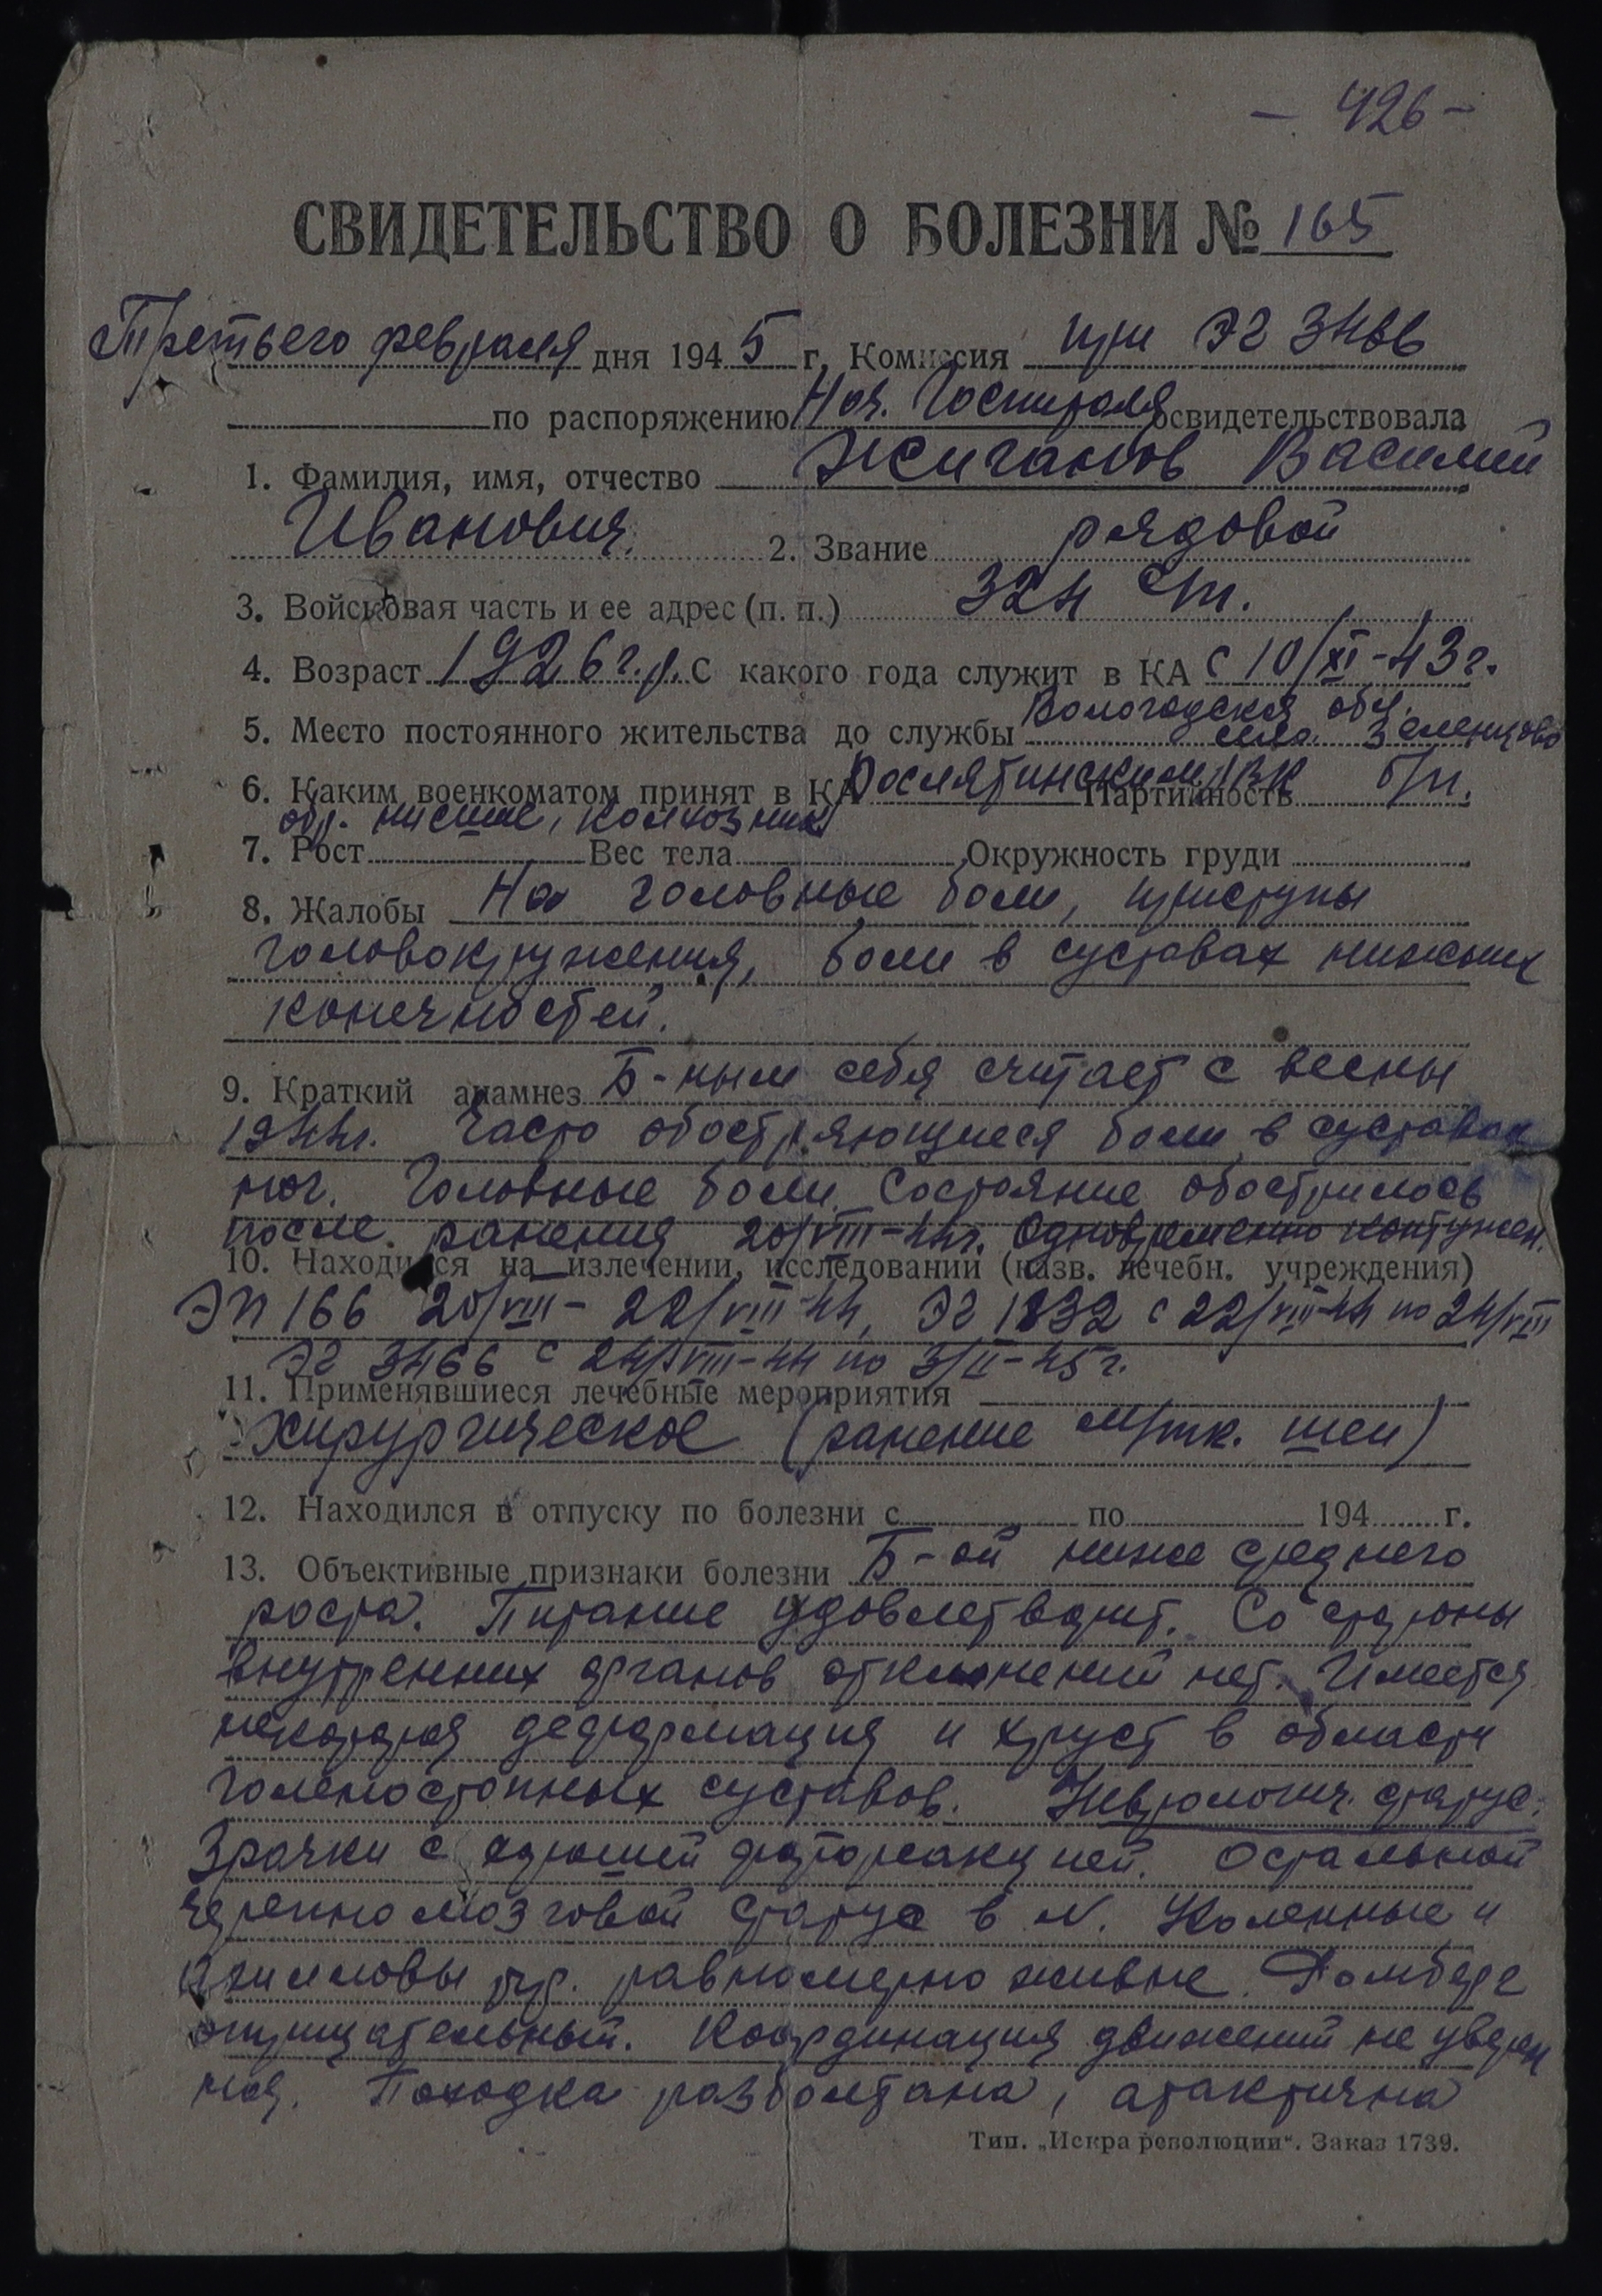 - 426 -
СВИДЕТЕЛЬСТВО О БОЛЕЗНИ № 165
Третьего февраля дня 1945 г. Комиссия при ЭГ 3466
по распоряжению Нач. Госпиталя освидетельствовала
1. Фамилия, имя, отчество Жиганов Василий
Иванович. 2. Звание рядовой
3. Войсковая часть и ее адрес (п. п.) 324 сп.
4. Возраст 1926 г.р. С какого года служит в КА с 10/XI-43 г.
Вологодская обл.
5. Место постоянного жительства до службы село Зеленцово
6. Каким военкоматом принят в КА Рослятинским РВК Партийность б/п.
обр. низшее, колхозник
7. Рост Вес тела Окружность груди
8. Жалобы На головные боли, приступы
головокружения, боли в суставах нижних
конечностей.
9. Краткий анамнез Б-ным себя считает с весны
1944г. Часто обостряющиеся боли в суставах
ног. Головные боли. Состояние обострилось
после ранения 20/VIII-44г. Одновременно контужен.
10. Находился на излечении, исследовании (назв. лечебн. учреждения)
ЭП 166 20/VIII - 22/VIII-44, ЭГ 1832 с 22/VIII-44 по 24/VIII
ЭГ 3466 с 24/VIII-44 по 3/II-45г.
11. Применявшиеся лечебные мероприятия
Хирургическое (ранение м/тк. шеи)
12. Находился в отпуску по болезни с по 194 г.
13. Объективные признаки болезни Б-ой ниже среднего
роста. Питание удовлетворит. Со стороны
внутренних органов отклонений нет. Имеется
некоторая деформация и хруст в области
голеностопных суставов. Неврологич. статус:
Зрачки с хорошей фотореакцией. Остальной
черепномозговой статус в N. Коленные и
ахилловы рф. равномерно живые. Ромберг
отрицательный. Координация движений не уверен
ная. Походка разболтана, атактична
Тип. „Искра революции“. Заказ 1739.